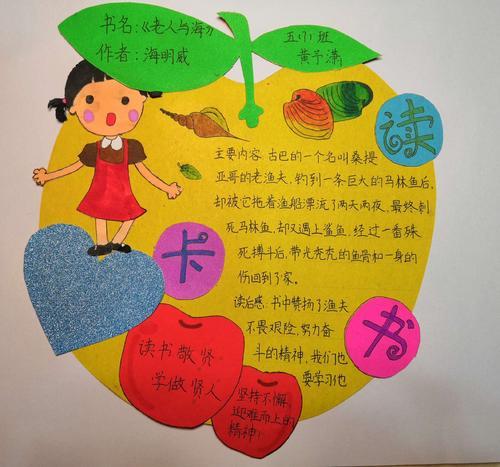 书名:《老人与海》
作者:海明威
五(1)班
黄予潇
读
书
卡
主要内容:古巴的一个名叫桑提
亚哥的老渔夫,钓到一条巨大的马林鱼后,
却被它拖着渔船漂流了两天两夜,最终刺
死马林鱼,却又遇上鲨鱼,经过一番殊
死搏斗后,带光秃秃的鱼骨和一身的
伤回到了家。
读后感:书中赞扬了渔夫
不畏艰险,努力奋
斗的精神,我们也
要学习他
读书敬贤
学做贤人
坚持不懈,
迎难而上的
精神!